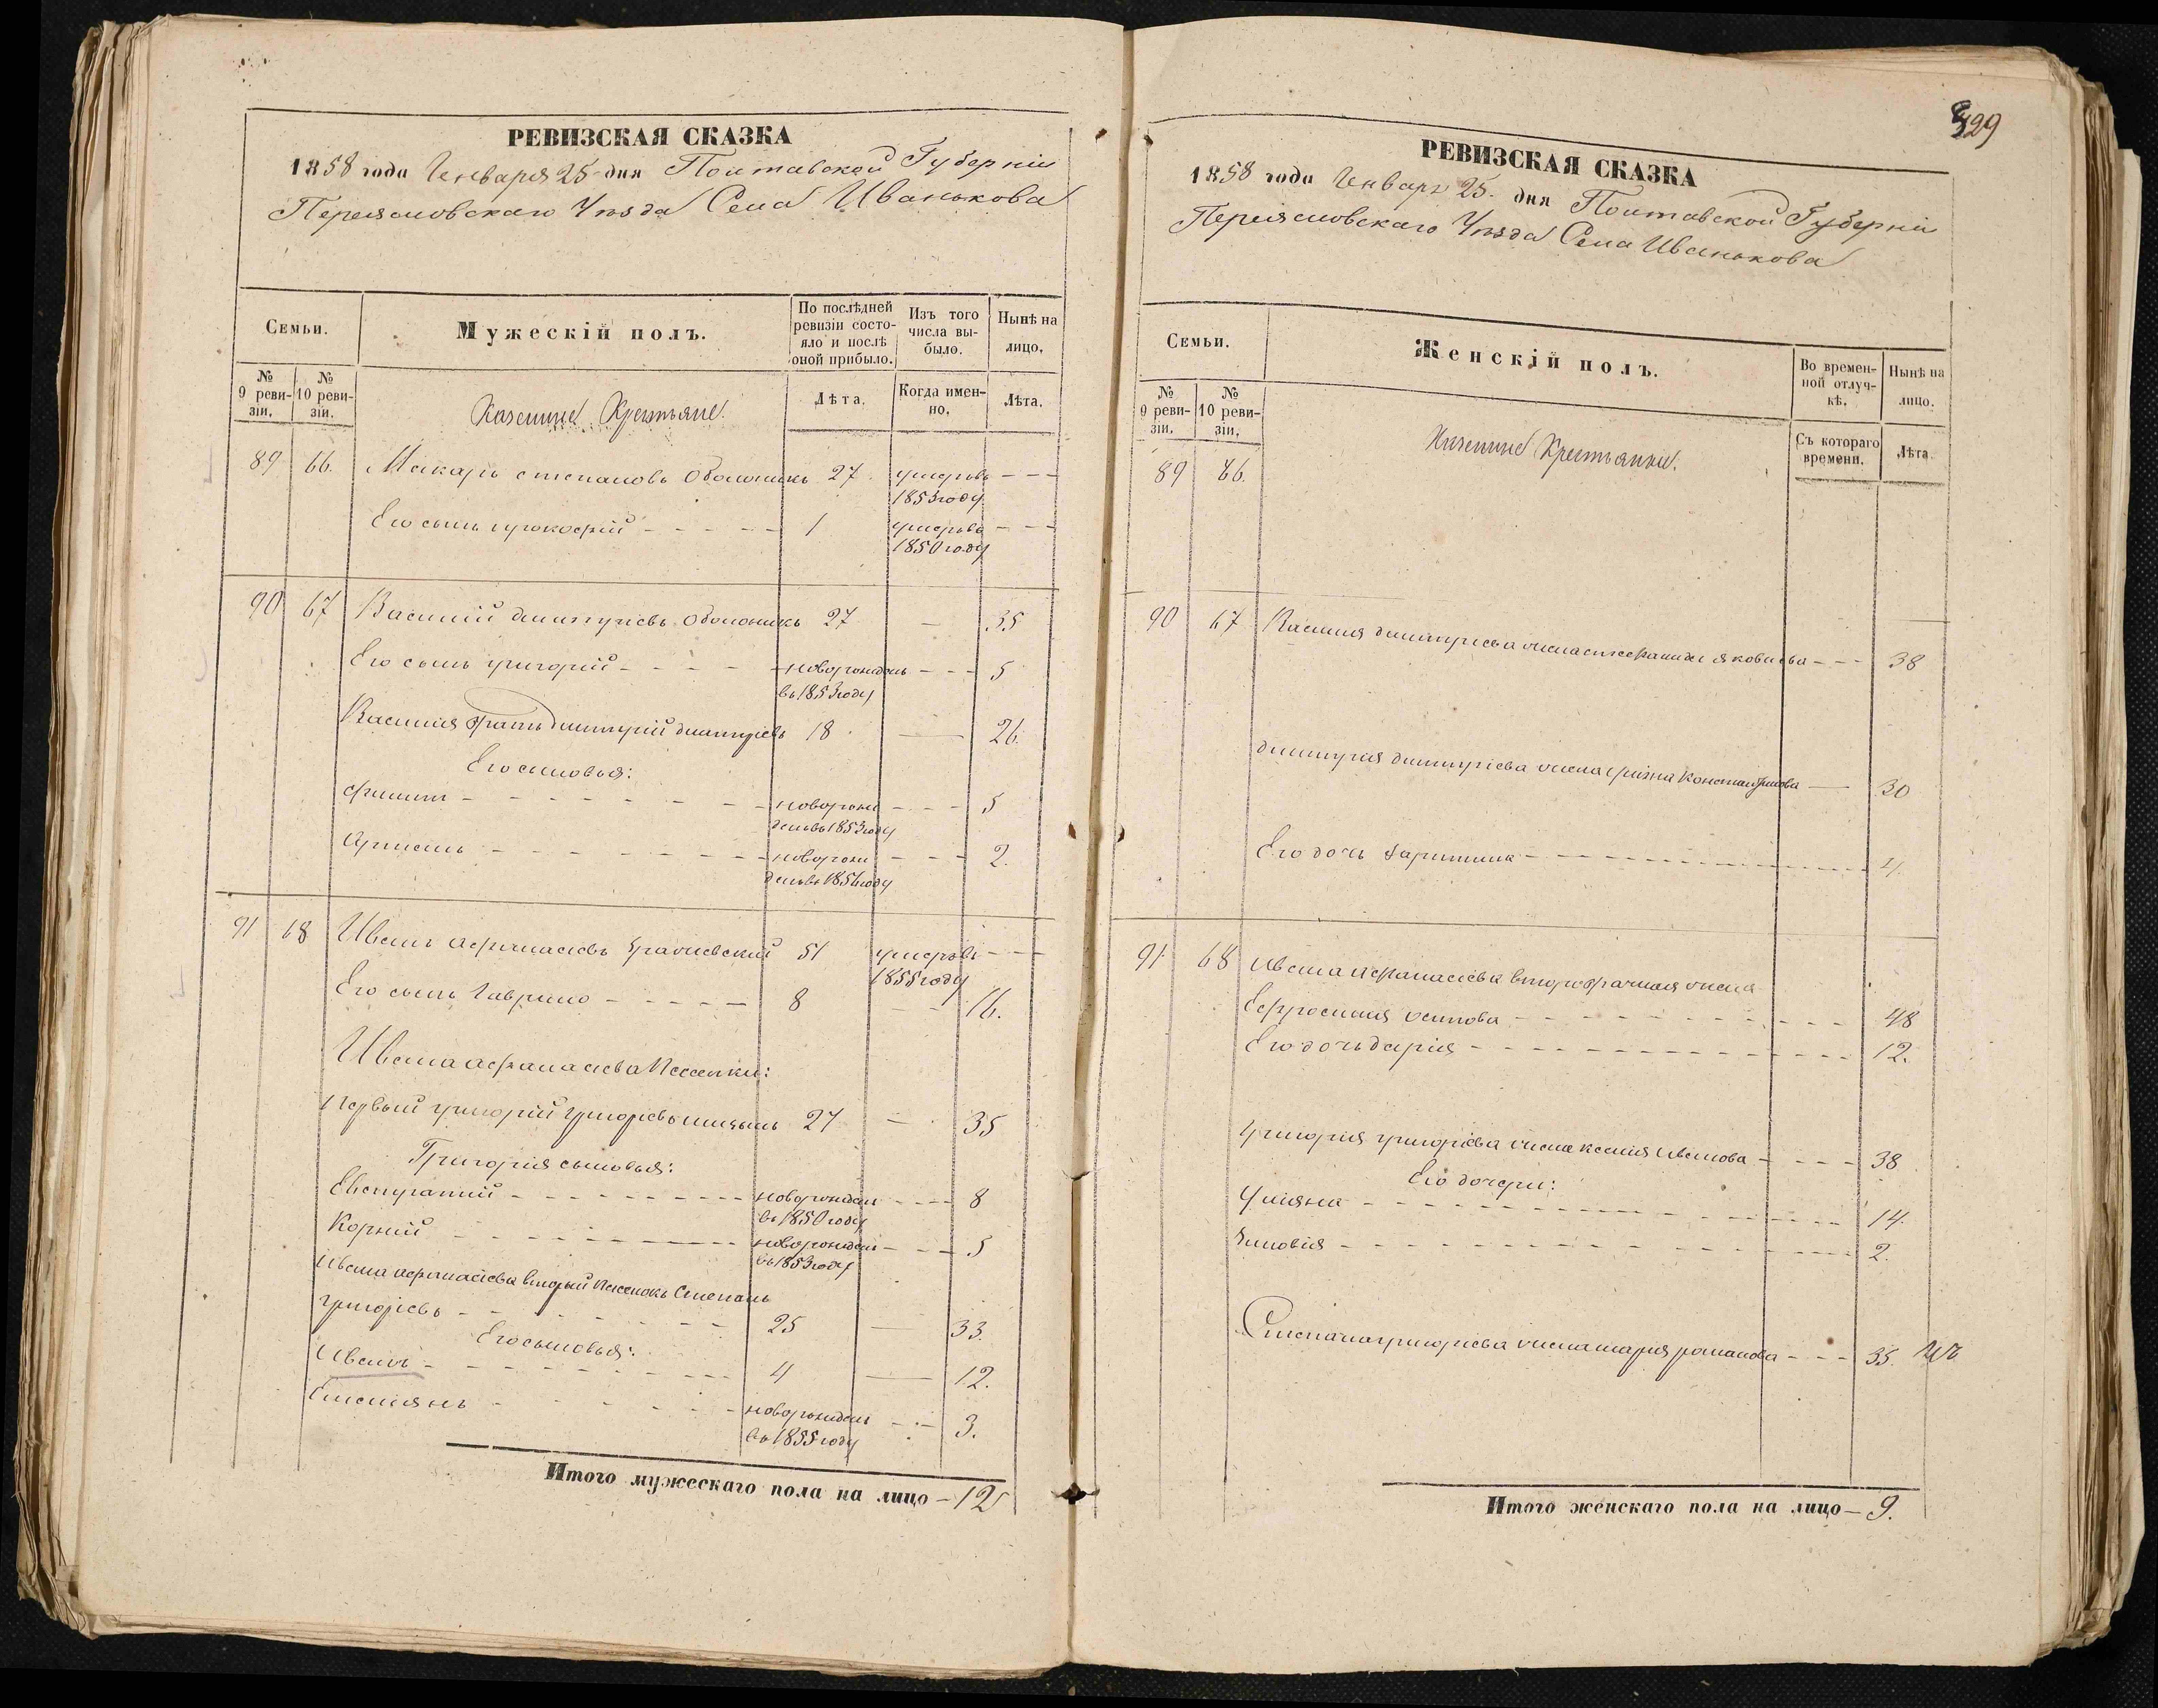 РЕВИЗСКАЯ СКАЗКА
1858 года Генваря 25 дня Полтавской Губерніи
Переясловскаго Уѣзда Села Иванькова
Семьи.
Мужескій полъ.
По послѣдней ревизіи состояло и послѣ оной прибыло.
Изъ того числа выбыло.
Нынѣ на лицо.
№ 9 ревизіи.
№ 10 ревизіи.
Казенные Крестьяне.
Лѣта.
Когда именно.
Лѣта.
89 66. Макаръ степановъ Оболоникъ 27 умеръ въ 1853 году
Его сынъ прокофій 1 умеръ въ 1850 году
90 67 Василій димитріевъ Оболоникъ 27 — 35
Его сынъ григорій новорожденъ въ 1853 году 5
Василія братъ димитрій димитріевъ 18 — 26.
Его сыновья:
филипп новорожденъ въ 1853 году 5
новорожденъ въ 1856 году 2.
91 68 Иванъ афанасіевъ 51 умеръ въ 1855 году
Его сынъ Гаврило 8 — 16.
Ивана афанасіева Пасенки:
Первый григорій григоріевъ 27 — 35
Григорія сыновья:
Евстратій новорожден въ 1850 году 8
Корній новорожден въ 1853 году 5
Ивана афанасіева вторый Пасенокъ Степанъ
григоріевъ 25 — 33.
Его сыновья:
Иванъ 4 — 12.
Емеліянъ новорожденъ въ 1855 году 3.
Итого мужескаго пола на лицо — 12
329
РЕВИЗСКАЯ СКАЗКА
1858 года Генваря 25. дня Полтавской Губерніи
Переясловскаго Уѣзда Села Иванькова
Семьи.
Женскій полъ.
Во временной отлучкѣ.
Нынѣ на лицо.
№ 9 ревизіи.
№ 10 ревизіи.
Казенные Крестьянки.
Съ котораго времени.
Лѣта.
89 66.
90 67 Василія димитріева жена стефанида яковлева 38
димитрія димитріева жена Константинова 30
Его дочь харитина 4.
91 68 Ивана Афанасіева второбрачная жена
Ефросинія осипова 48
Его дочь дарія 12.
григорія григоріева жена ксенія иванова 38
Его дочери:
уліяна 14.
зиновія 2.
Степана григоріева жена марія романова 35.
Итого женскаго пола на лицо — 9.